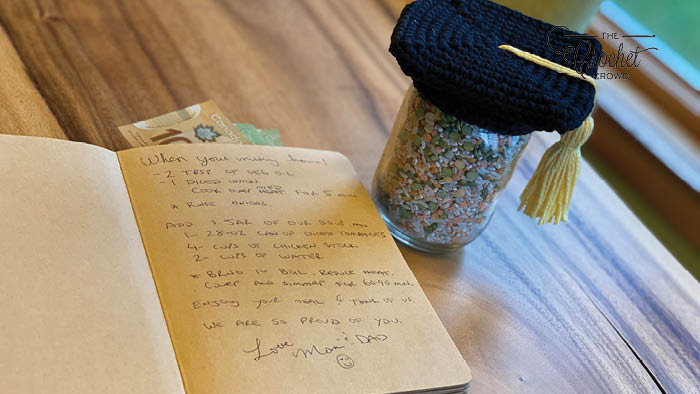 THE
Crochet
CROWD
10
Canada
When you missing home!
- 2 TBSP OF VEG OIL
- 1 DICED ONION
COOK OVER MED HEAT FOR 5 MIN
* RINSE ONIONS.
ADD 1 JAR OF OUR SOUP MIX
1- 28-OZ CAN OF DICED TOMATOES
4- CUPS OF CHICKEN STOCK
2- CUPS OF WATER
* BRING TO BOIL. REDUCE HEAT.
COVER AND SIMMER FOR 60-90 MIN.
ENJOY YOUR MEAL & THINK OF US.
WE ARE SO PROUD OF YOU.
Love Mom & DAD